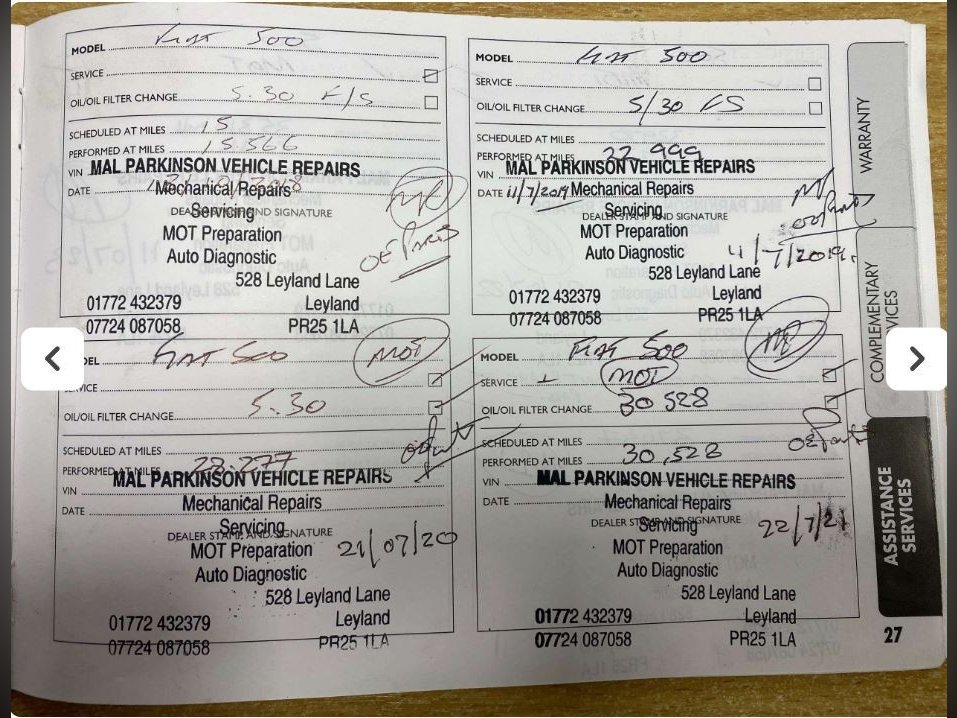 MODEL Fiat 500
SERVICE
OIL/OIL FILTER CHANGE 5.30 F/S
SCHEDULED AT MILES 15
PERFORMED AT MILES 15566
VIN MAL PARKINSON VEHICLE REPAIRS
DATE
Mechanical Repairs
DEALER STAMP AND SIGNATURE
Servicing
MOT Preparation
OE Parts
Auto Diagnostic
528 Leyland Lane
01772 432379 Leyland
07724 087058 PR25 1LA
MODEL Fiat 500
SERVICE
OIL/OIL FILTER CHANGE 5/30 FS
SCHEDULED AT MILES
PERFORMED AT MILES 22999
VIN MAL PARKINSON VEHICLE REPAIRS
DATE 11/7/2019 Mechanical Repairs
DEALER STAMP AND SIGNATURE
Servicing
MOT Preparation
11/7/2019
Auto Diagnostic
528 Leyland Lane
01772 432379 Leyland
07724 087058 PR25 1LA
DEL Fiat 500 MOT
VICE
OIL/OIL FILTER CHANGE 5.30
SCHEDULED AT MILES
PERFORMED AT MILES 28277
VIN MAL PARKINSON VEHICLE REPAIRS
DATE Mechanical Repairs
DEALER STAMP AND SIGNATURE
Servicing
MOT Preparation 21/07/20
Auto Diagnostic
528 Leyland Lane
01772 432379 Leyland
07724 087058 PR25 1LA
MODEL FIAT 500
SERVICE + MOT
OIL/OIL FILTER CHANGE 30528
SCHEDULED AT MILES
OE Parts
PERFORMED AT MILES 30,528
VIN MAL PARKINSON VEHICLE REPAIRS
DATE Mechanical Repairs
DEALER STAMP AND SIGNATURE
Servicing
22/7/21
MOT Preparation
Auto Diagnostic
528 Leyland Lane
01772 432379 Leyland
07724 087058 PR25 1LA
WARRANTY
COMPLEMENTARY
VICES
ASSISTANCE
SERVICES
27